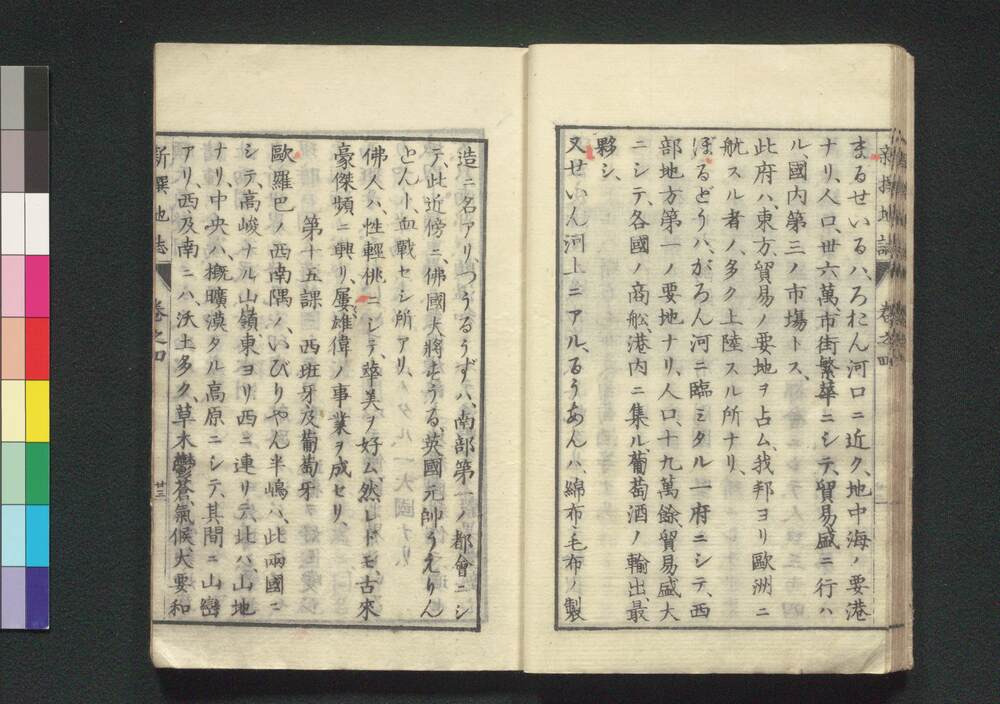 まるせいるハ、ろおん河口ニ近ク、地中海ノ要港
ナリ、人口、卅六萬、市街繁華ニシテ、貿易盛ニ行ハ
ル、國内第三ノ市場トス、
此府ハ、東方貿易ノ要地ヲ占ム、我邦ヨリ歐洲ニ
航スル者ノ、多ク上陸スル所ナリ、
ぼるどうハ、がろん河ニ臨ミタル一府ニシテ、西
部地方第一ノ要地ナリ、人口、十九萬餘、貿易盛大
ニシテ、各國ノ商舩、港内ニ集ル、葡萄酒ノ輸出、最
夥シ、
又せいん河上ニアル、るうあんハ、綿布、毛布ノ製
造ニ名アリ、つうるうずハ、南部第一ノ都會ニシ
テ、此近傍ニ、佛國大將そうる、英國元帥うえりん
とんト、血戰セシ所アリ、
佛人ハ、性輕佻ニシテ、華美ヲ好ム、然レドモ、古來
豪傑頻ニ興リ、屢雄偉ノ事業ヲ成セリ、
第十五課 西班牙及葡萄牙
歐羅巴ノ西南隅ノ、いびりやん半嶋ハ、此兩國ニ
シテ、高峻ナル山嶺、東ヨリ西ニ連リテ、北ハ、山地
ナリ、中央ハ、概曠漠タル高原ニシテ、其間ニ山巒
アリ、西、及南ニハ、沃土多ク、草木鬱蒼、氣候大要和
新撰地誌 卷之四 廿三